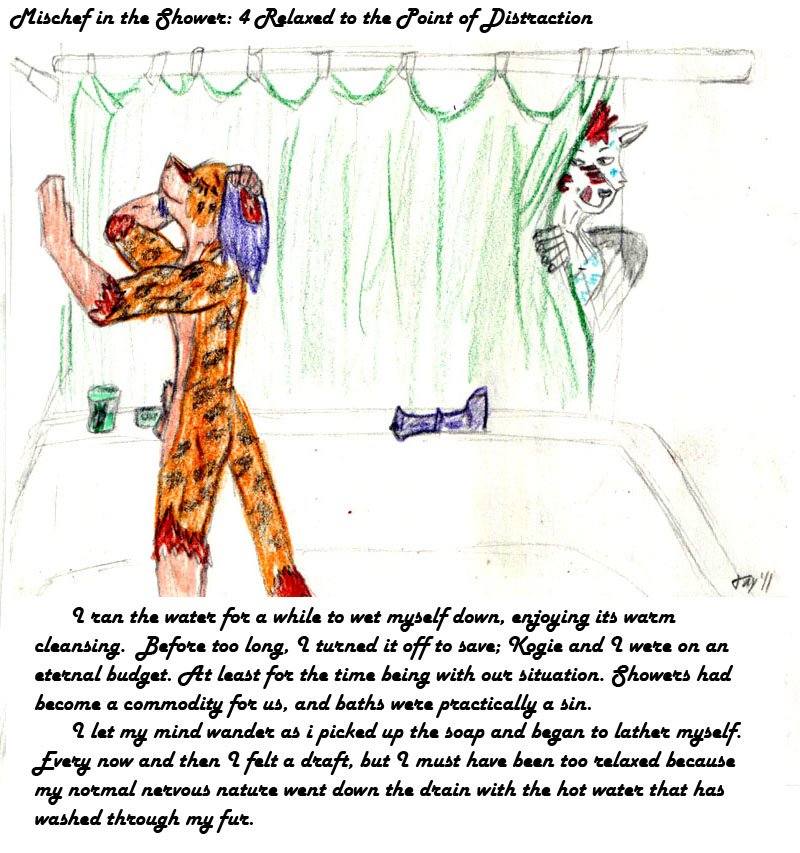 Mischef in the Shower: 4 Relaxed to the Point of Distraction
Jay '11
I ran the water for a while to wet myself down, enjoying its warm
cleansing. Before too long, I turned it off to save; Kogie and I were on an
eternal budget. At least for the time being with our situation. Showers had
become a commodity for us, and baths were practically a sin.
I let my mind wander as i picked up the soap and began to lather myself.
Every now and then I felt a draft, but I must have been too relaxed because
my normal nervous nature went down the drain with the hot water that has
washed through my fur.